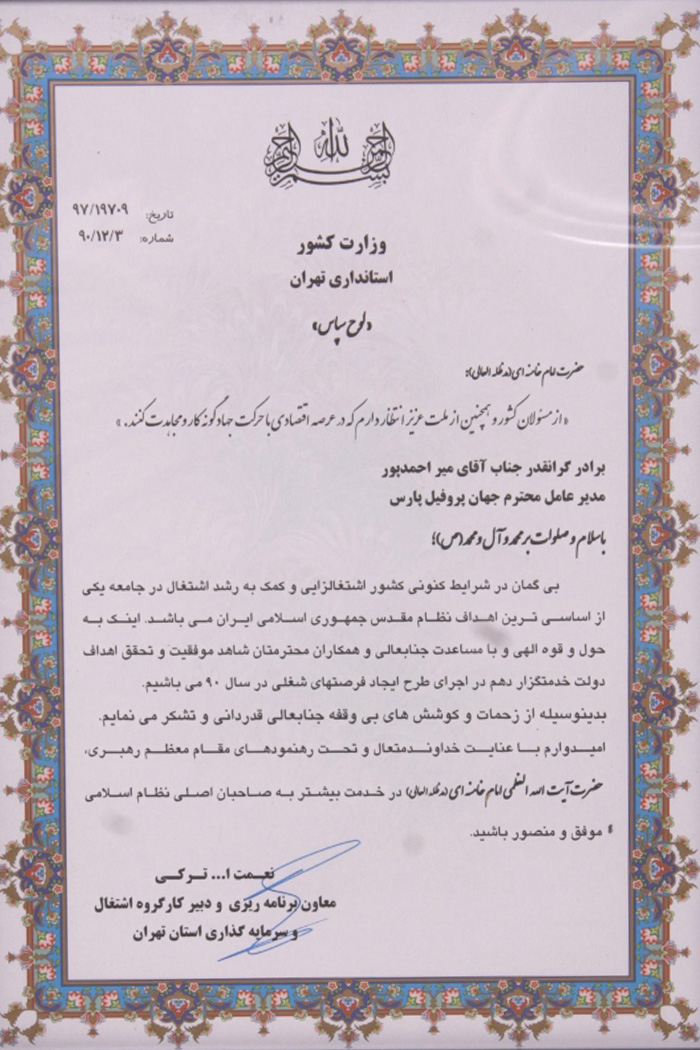 بسم الله الرحمن الرحیم
تاریخ: ۹۷/۱۹۷۰۹
شماره: ۹۰/۱۲/۳
وزارت کشور
استانداری تهران
«لوح سپاس»
حضرت امام خامنه ای (مدظله العالی):
« از مسئولان کشور و همچنین از ملت عزیز انتظار دارم که در عرصه اقتصادی با حرکت جهادگونه کار و مجاهدت کنند. »
برادر گرانقدر جناب آقای میر احمدپور
مدیر عامل محترم جهان پروفیل پارس
باسلام و صلوات بر محمد و آل و محمد (ص)؛
بی گمان در شرایط کنونی کشور اشتغالزایی و کمک به رشد اشتغال در جامعه یکی
از اساسی ترین اهداف نظام مقدس جمهوری اسلامی ایران می باشد. اینک به
حول و قوه الهی و با مساعدت جنابعالی و همکاران محترمتان شاهد موفقیت و تحقق اهداف
دولت خدمتگزار دهم در اجرای طرح ایجاد فرصتهای شغلی در سال ۹۰ می باشیم.
بدینوسیله از زحمات و کوشش های بی وقفه جنابعالی قدردانی و تشکر می نمایم.
امیدوارم با عنایت خداوندمتعال و تحت رهنمودهای مقام معظم رهبری،
حضرت آیت الله العظمی امام خامنه ای (مدظله العالی) در خدمت بیشتر به صاحبان اصلی نظام اسلامی
موفق و منصور باشید.
نعمت ا... ترکی
معاون برنامه ریزی و دبیر کارگروه اشتغال
و سرمایه گذاری استان تهران